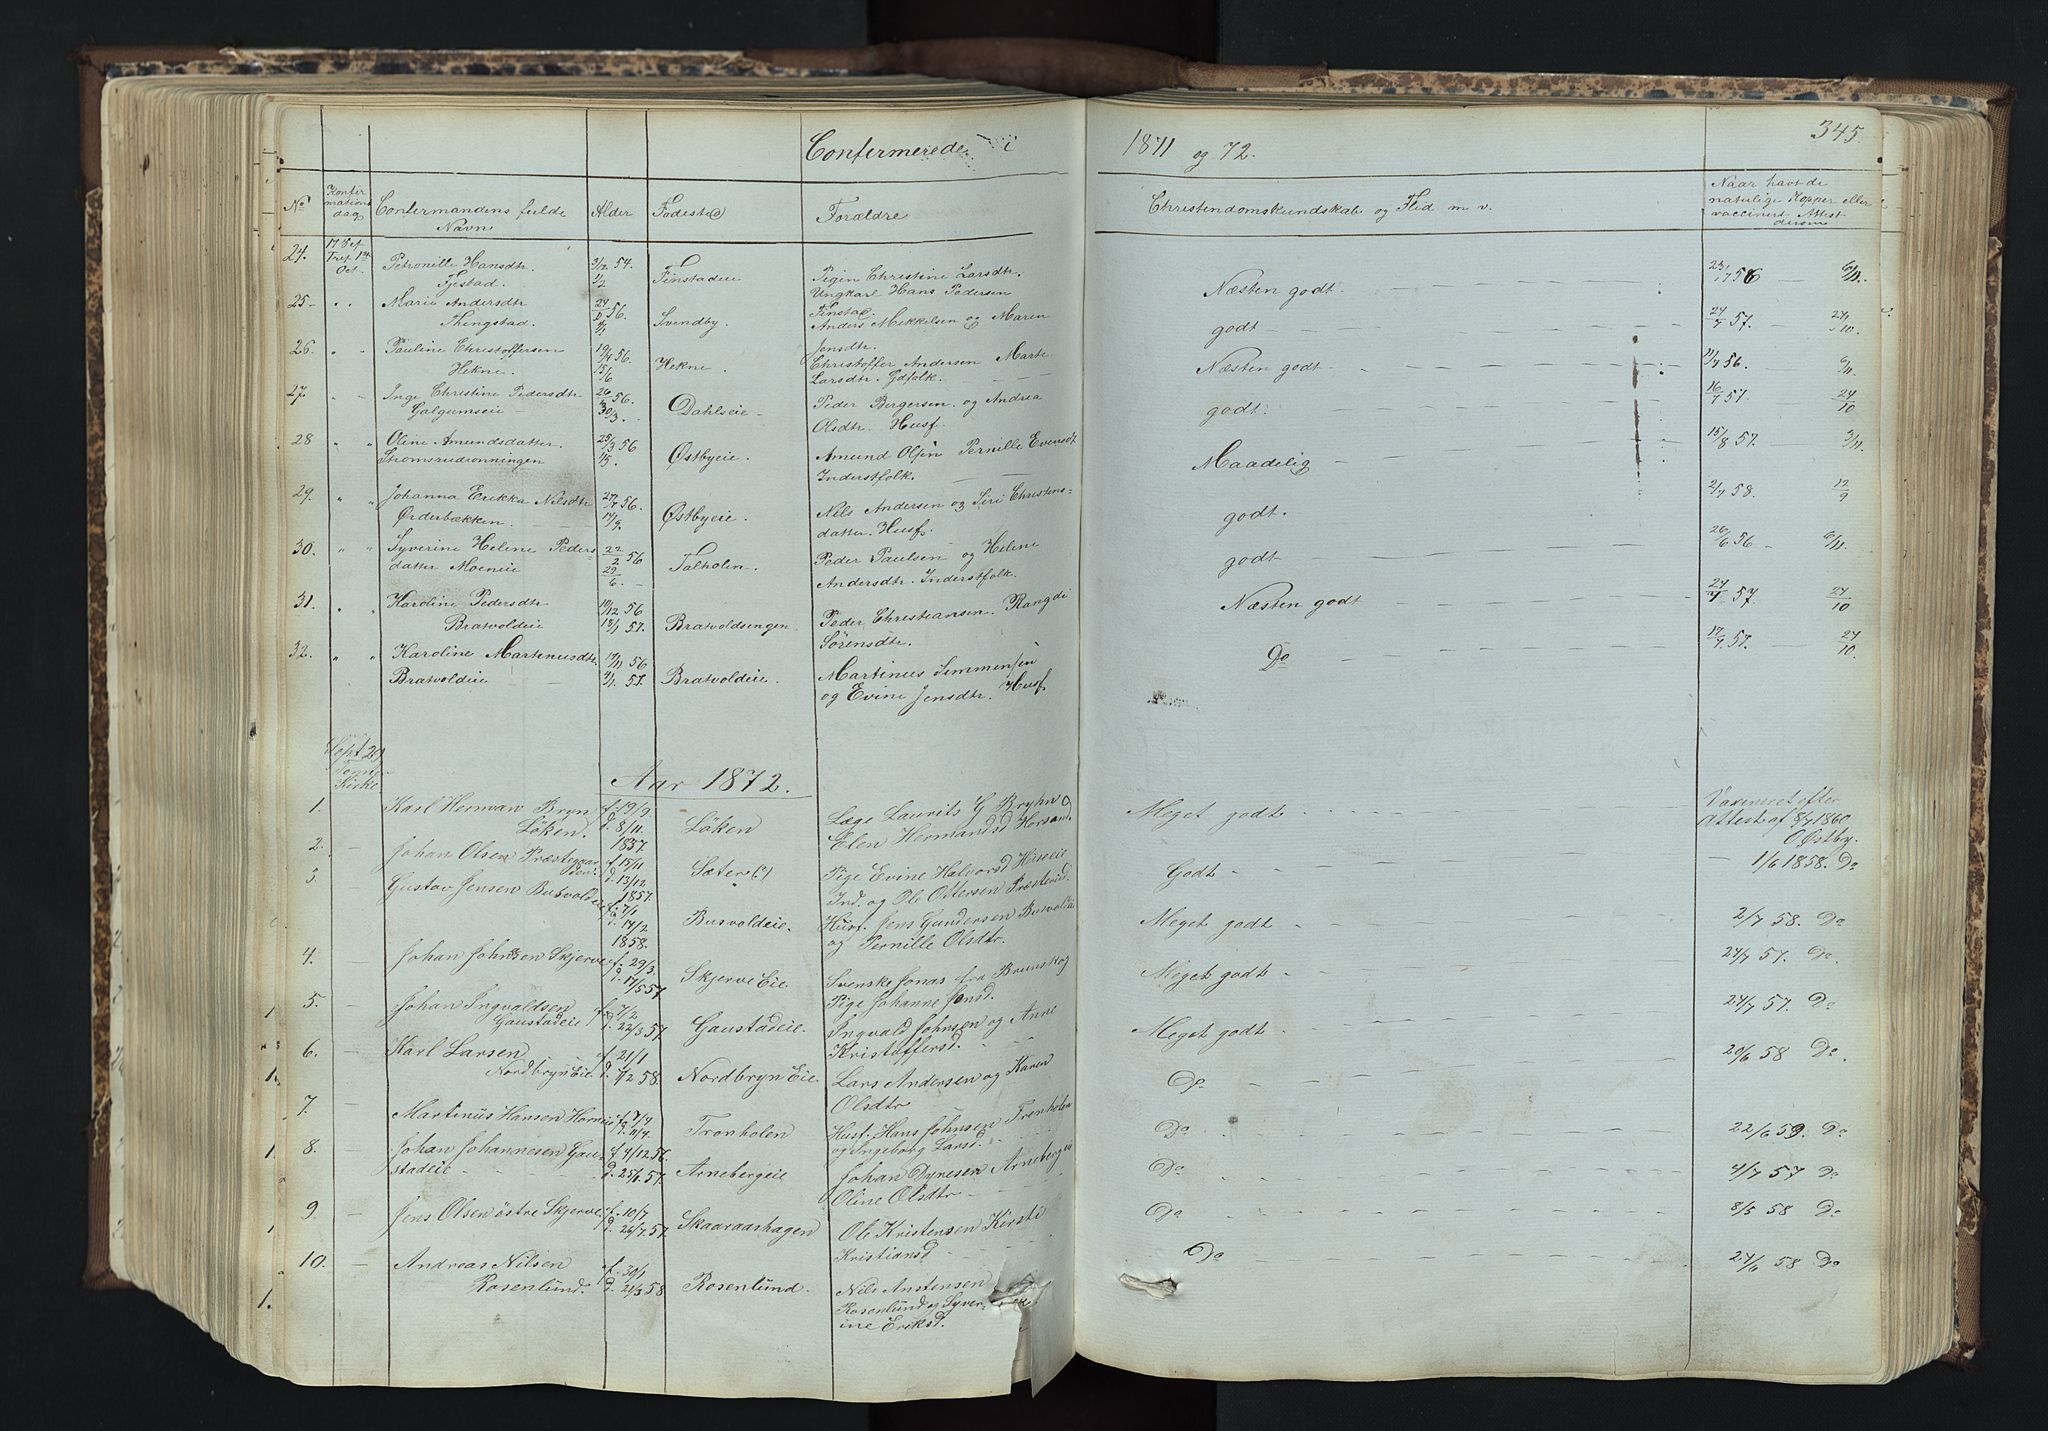 Confermerede i 1871 og 72. 345.
No Konfirmationsdag Confermandens fulde Navn Alder Fødested Forældre Christendomskundskab og Flid m v. Naar havt de naturlige Kopper eller vaccinert Attest derom
24. 17 Sep Tref. 1ste Oct. Petronille Hansdtr. 3/12 54. Finstadeie Pigen Christine Larsdtr. Næsten godt 23/7 56 6/11.
Fjestad. 1/2 Ungkarl Hans Pedersen Finstad.
25 Marie Andersdtr 56. Svendby. Anders Mikkelsen og Maren godt 24/7 57. 24/10.
Thingstad. Jensdtr.
26. Pauline Christoffersen 19/4 56. Hekne. Christoffer Andersen Marte Næsten godt 11/7 56. 6/11.
Hekne. 15/6 Larsdtr. Gdfolk.
27 Inge Christine Pedersdtr 56. Dahlseie Peder Bergersen og Andrea godt. 16/7 57. 24/10
Galgumseie 30/3. Olsdtr. Husf.
28 Oline Amundsdatter. 25/3 56 Østbyeie. Amund Olsen Pernille Evensdt Maadelig 15/8 57.
Strømsrudrønningen Inderstfolk.
29. Johanna Erikka Nilsdtr 27/7 56. Østbyeie. Nils Andersen og Siri Christens- godt. 2/7 58. 12/9
Ørderbækken. 14/9. datter. Husf.
30. Syverine Helene Peders- 22/2 56 Talholen. Peder Paulsen og Helene godt 26/6 56 6/11.
datter Moeneie 29/6. Andersdtr. Inderstfolk.
31. Karoline Pedersdtr 10/12 56 Bratvoldsengen Peder Christiansen. Rangdi Næsten godt 24/7 57. 24/10
Bratvoldeie 18/1 57. Sørensdtr.
32. Karoline Martinusdtr. 56 Bratvoldeie. Martinus Simmensen Do 17/7 57. 24/10.
Bratvoldeie 57. og Evine Jensdtr. Husf
Sept 29
Kirke
Aar 1872.
1. Karl Herman Bryn f. 19/9. Løken Læge Laurits G Bryhn og Meget godt Vaxineret efter
Løken. d. 8/11. 1857. Elen Hermandsd Horsand. Attest af 8/7 1860 O Østby.
2. Johan Olsen Præstegaar f. 15/11 Sæter (?) Pige Evine Halvorsd Kirseie Godt 1/6 1858. Do
d. 13/12 1857. Ind. og Ole Ottersen Præsterud.
3. Gustav Jensen Busvoldeie f. 7/1 Busvoldeie. Husf. Jens Gundersen Busvoldeie Meget godt 2/7 58. Do
d. 14/2 1858. og Pernille Olsdtr.
4. Johan Johnsen Skjerve f. 29/3. Skjerve Eie Svenske Jonas fra Brunskog Meget godt 24/7 57. Do.
d. 17/5 57. Pige Johanne Jensd.
5. Johan Ingvaldsen f. 7/2 Gaustadeie. Ingvald Johnsen og Anne Meget godt 24/7 57. Do
1 Gaustadeie d. 22/3 57. Kristoffersd.
6. Karl Larsen f. 21/1 Nordbryn Eie. Lars Andersen og Karen Do 20/6 58 Do.
1. Nordbryn Eie. d. 7/2 58. Olsdtr
7. Martinus Hansen Horneie f. 7/4 Tronholen Husf. Hans Johnsen Tronholen Do 22/6 59. Do
d. 11/4. og Ingeborg Larsd.
1 8. Johan Johannesen Gau- f. 4/12 56. Arnebergeie Johan Dynesen Arnebergeie Do 4/7 57 Do
stadeie d. 25/1. 57. Oline Olsdtr
9 Jens Olsen østre Skjerve. f. 10/7 Skaaraashagen Ole Kristensen Kirsti Do 8/5 58 Do
1 d. 26/7. 57. Kristiansd
10. Andreas Nilsen f. 30/1 Rosenlund. Nils Anstensen Do 24/6 58 Do
1. Rosenlund. d. 21/3 58 Rosenlund og Syver-
ine Eriksd.